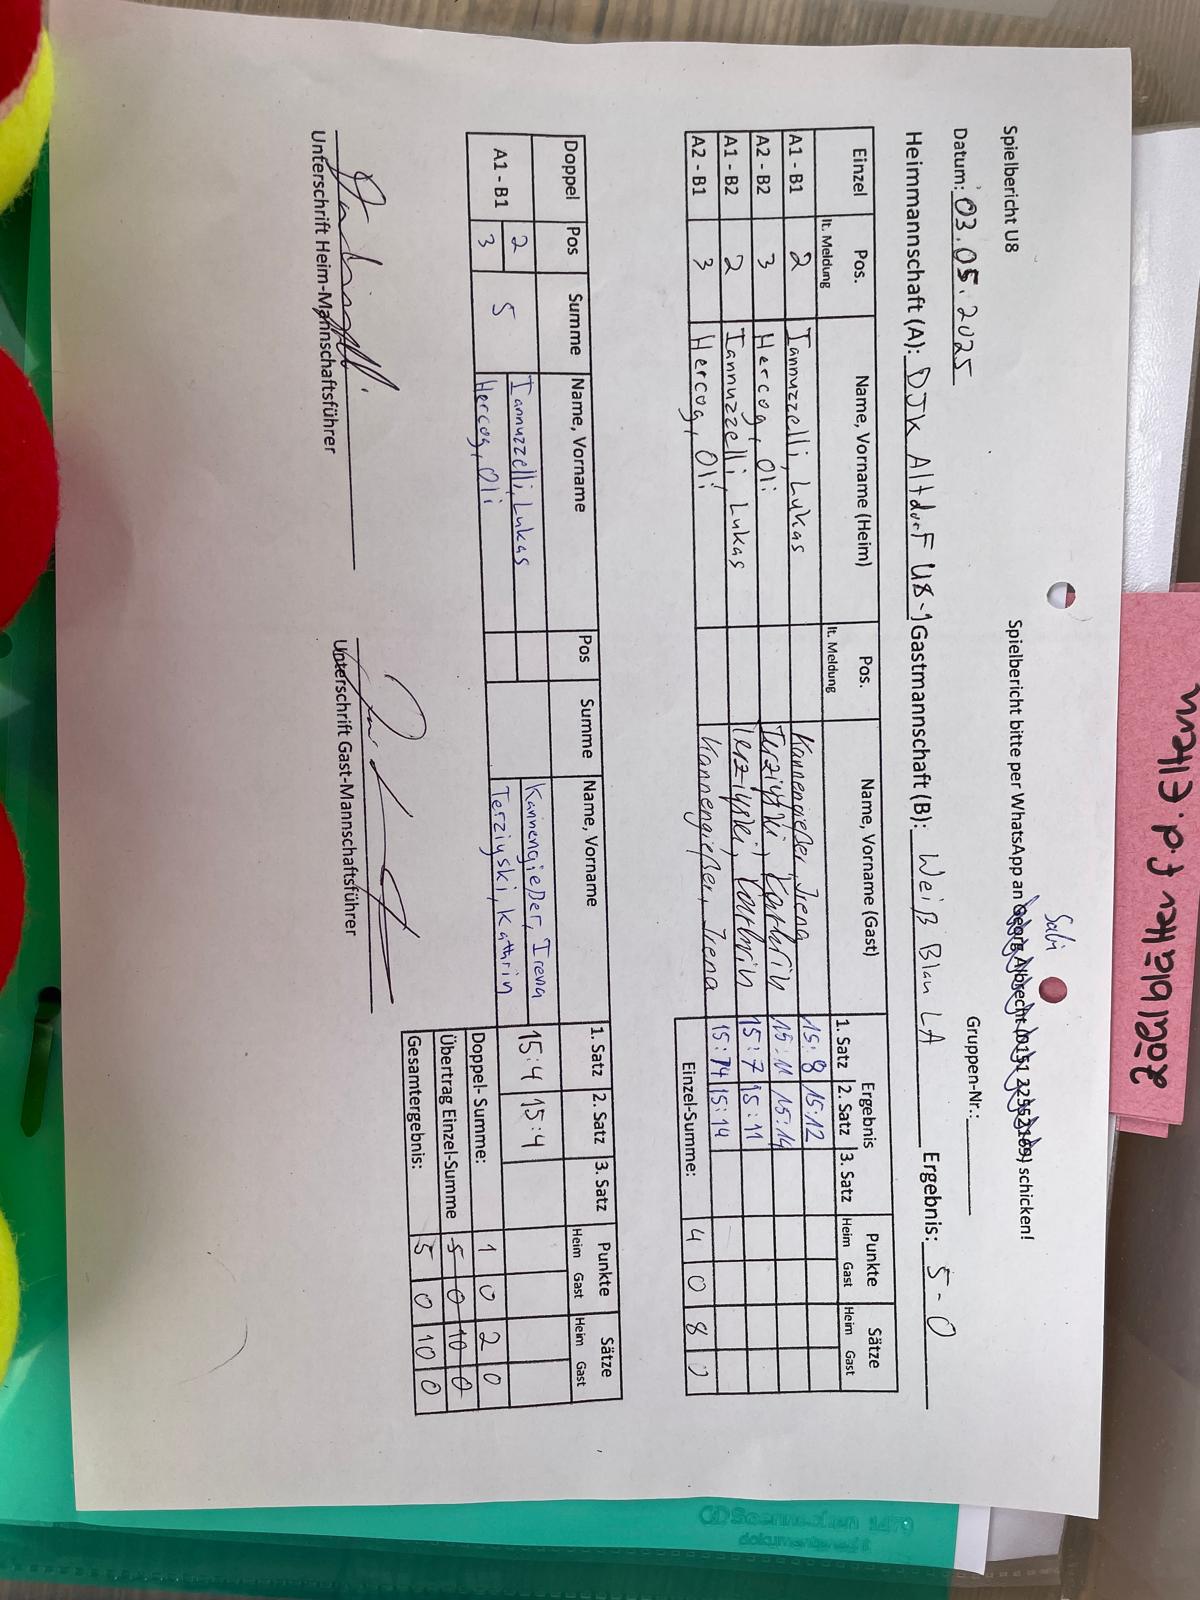 Spielbericht U8
Spielbericht bitte per WhatsApp an Georg Albrecht (0151 22552169) schicken!
Sabi
Datum: 03.05.2025
Gruppen-Nr.:
Heimmannschaft (A): DJK Altdorf U8-1 Gastmannschaft (B): Weiß Blau LA Ergebnis: 5-0
Einzel Pos. lt. Meldung Name, Vorname (Heim) Pos. lt. Meldung Name, Vorname (Gast) Ergebnis 1. Satz 2. Satz 3. Satz Punkte Heim Gast Sätze Heim Gast
A1 - B1 2 Iannuzzelli, Lukas Kannengießer, Irena 15:8 15:12
A2 - B2 3 Hercog, Oli Terziyski, Kathrin 15:11 15:14
A1 - B2 2 Iannuzzelli, Lukas Terziyski, Kathrin 15:7 15:11
A2 - B1 3 Hercog, Oli Kannengießer, Irena 15:14 15:14
Einzel-Summe: 4 0 8 0
Doppel Pos Summe Name, Vorname Pos Summe Name, Vorname 1. Satz 2. Satz 3. Satz Punkte Heim Gast Sätze Heim Gast
A1 - B1 2 5 Iannuzzelli, Lukas Kannengießer, Irena 15:4 15:4
3 Hercog, Oli Terziyski, Kathrin
Doppel-Summe: 1 0 2 0
Übertrag Einzel-Summe 5 0 10 0
Gesamtergebnis: 5 0 10 0
Unterschrift Heim-Mannschaftsführer
Unterschrift Gast-Mannschaftsführer
f.d. Eltern